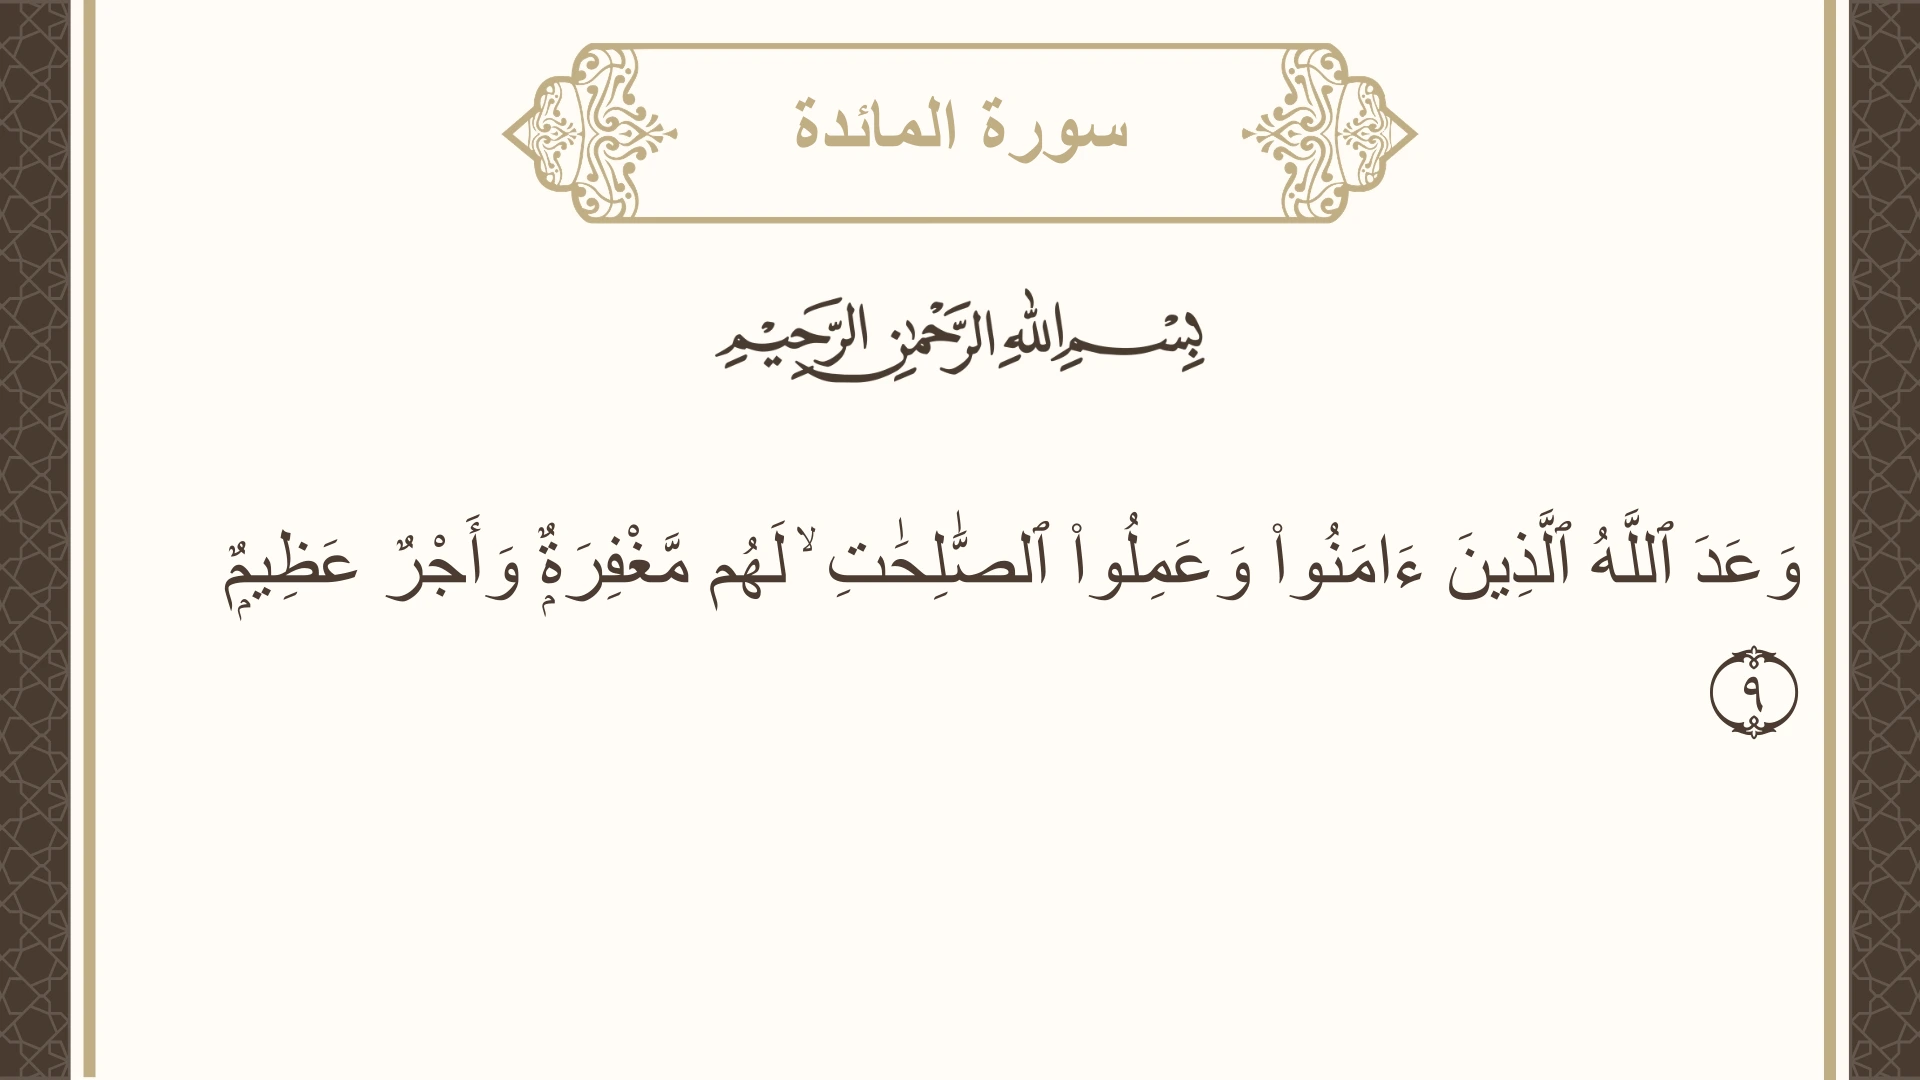 سورة المائدة
بِسْمِ اللهِ الرَّحْمٰنِ الرَّحِيْمِ
وَعَدَ ٱللَّهُ ٱلَّذِينَ ءَامَنُوا۟ وَعَمِلُوا۟ ٱلصَّـٰلِحَـٰتِ ۙ لَهُم مَّغْفِرَةٌۭ وَأَجْرٌ عَظِيمٌۭ
٩